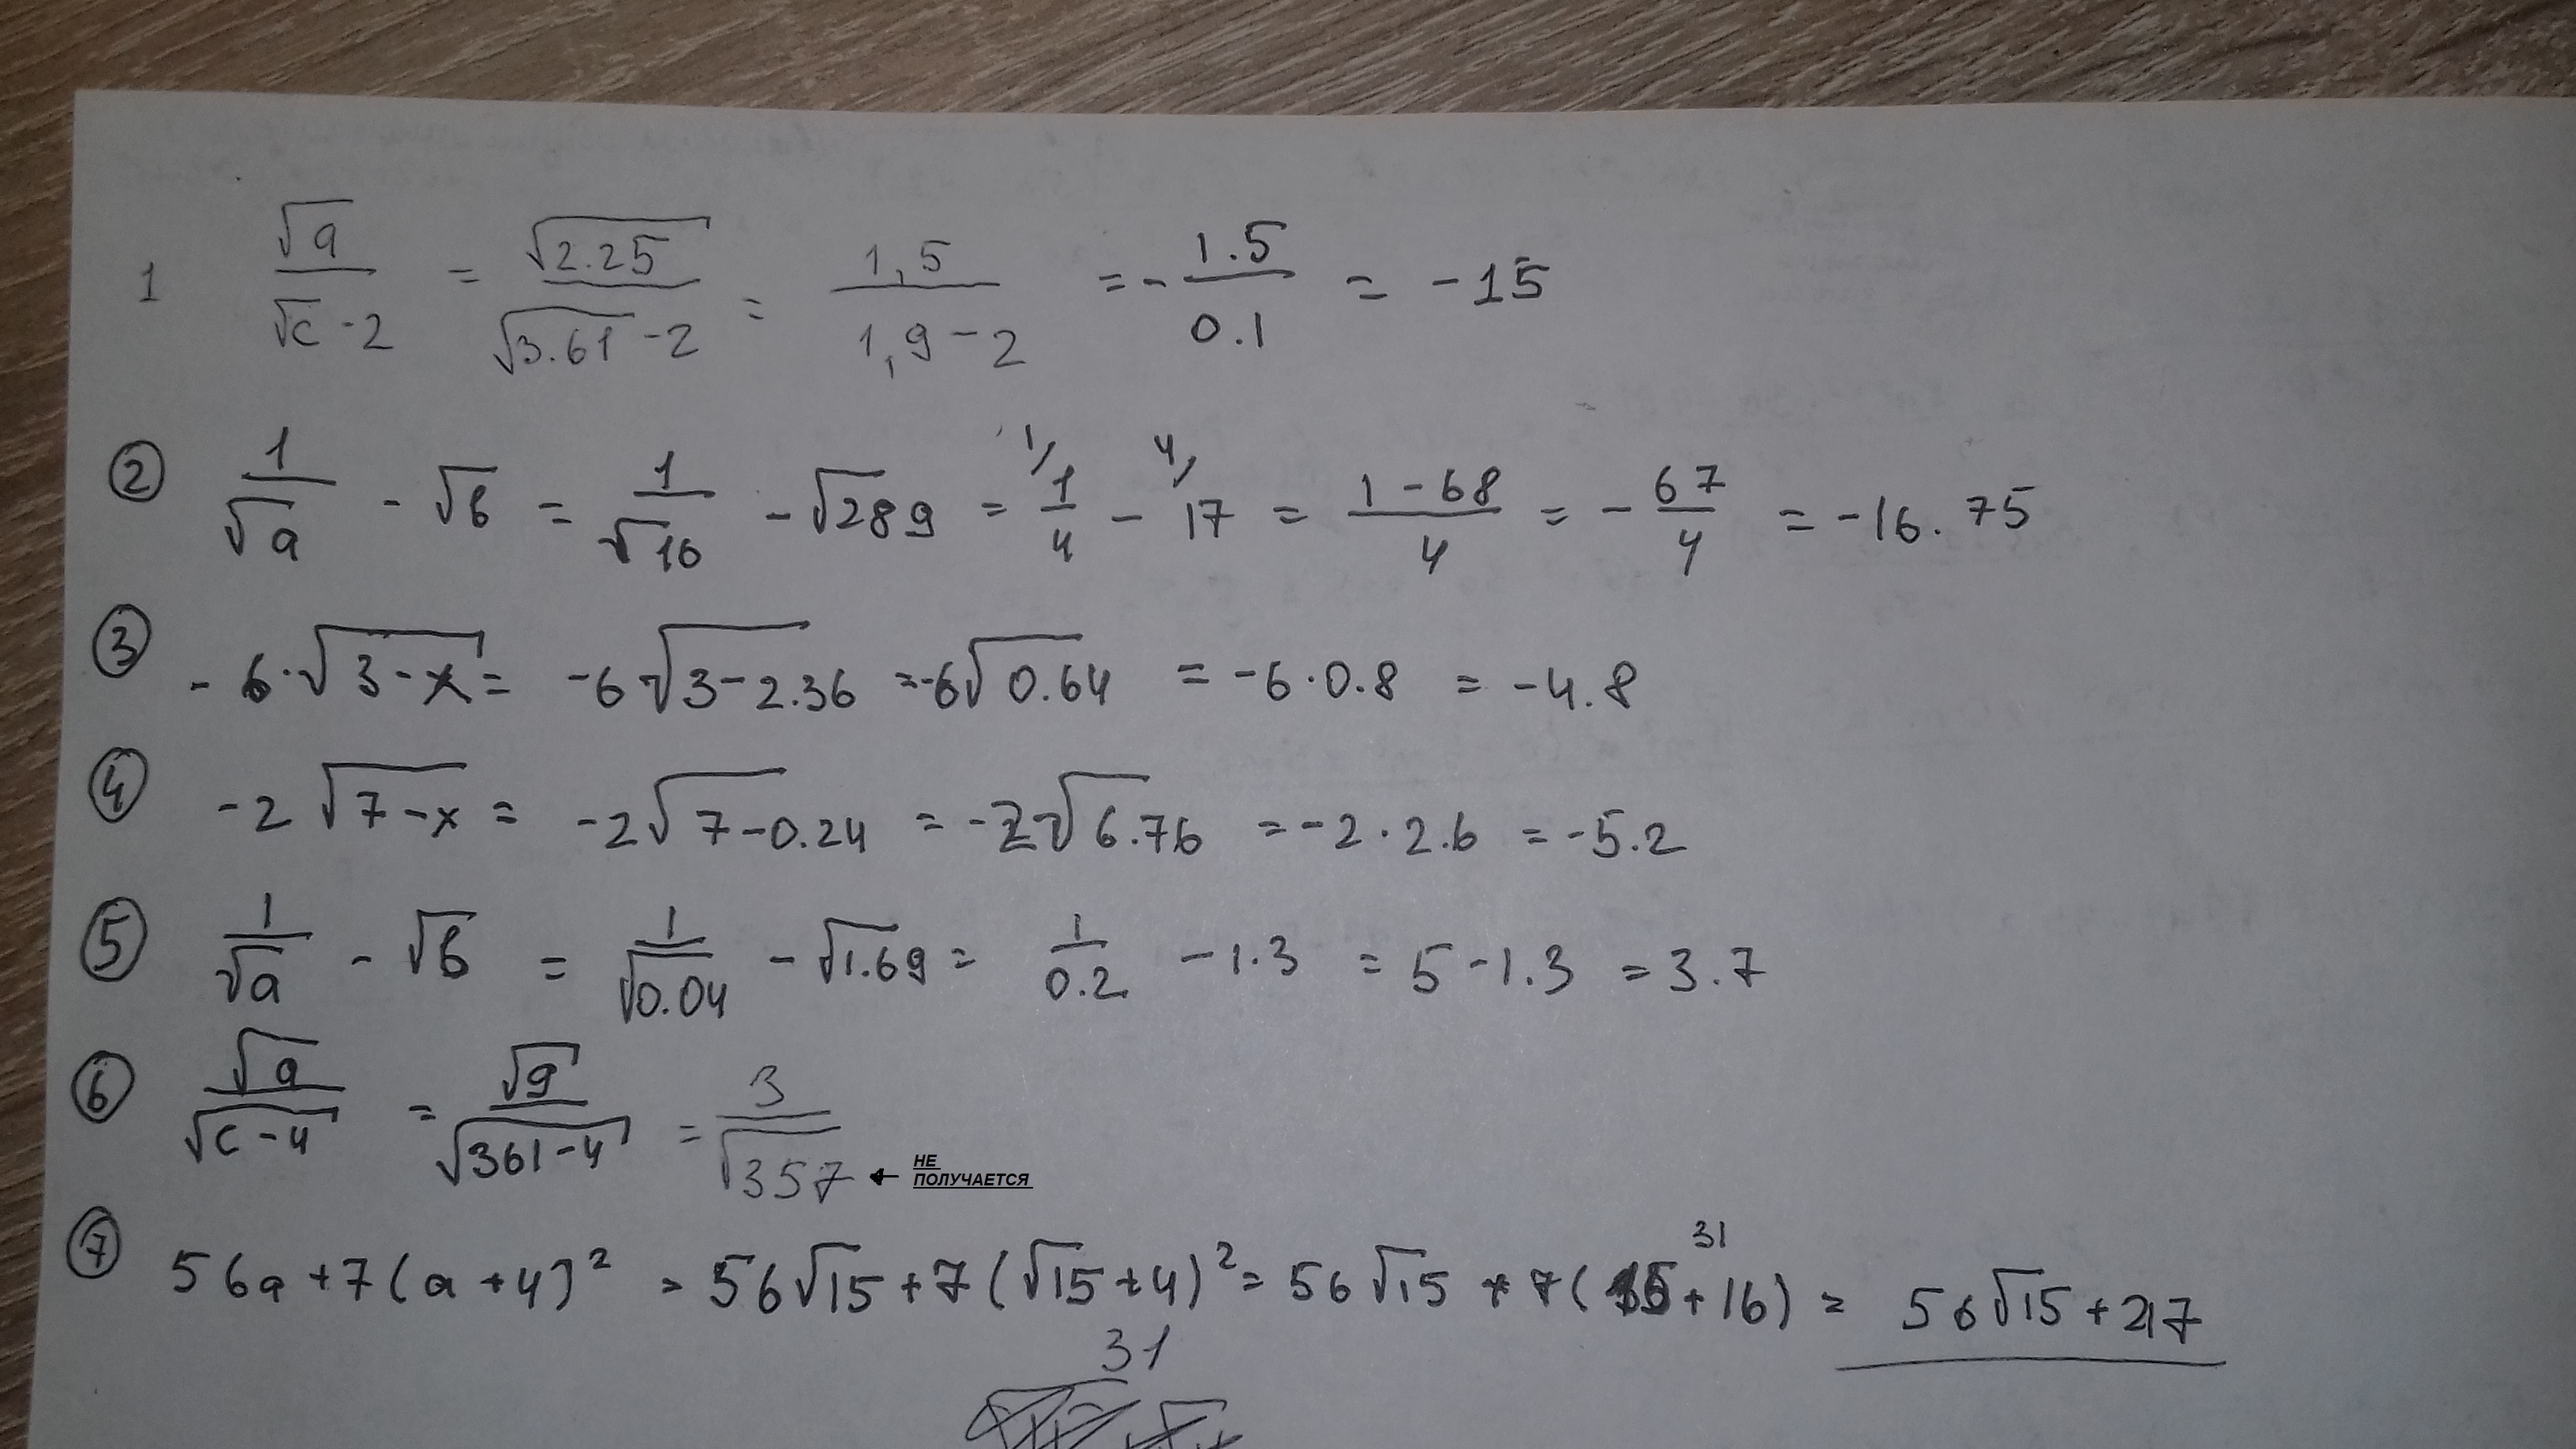 1 √a/(√c - 2) = √2.25/(√3.61 - 2) = 1,5/(1,9 - 2) = - 1.5/0.1 = -15
② 1/√a - √b = 1/√16 - √289 = 1/4 - 17 = (1 - 68)/4 = - 67/4 = -16.75
③ - 6·√(3 - x) = -6√(3 - 2.36) = -6√0.64 = -6·0.8 = -4.8
④ -2√(7 - x) = -2√(7 - 0.24) = -2√6.76 = -2·2.6 = -5.2
⑤ 1/√a - √b = 1/√0.04 - √1.69 = 1/0.2 - 1.3 = 5 - 1.3 = 3.7
⑥ √a/√(c - 4) = √9/√(361 - 4) = 3/√357
НЕ
ПОЛУЧАЕТСЯ
31
⑦ 56a + 7(a + 4)² = 56√15 + 7(√15 + 4)² = 56√15 + 7(15 + 16) = 56√15 + 217
31